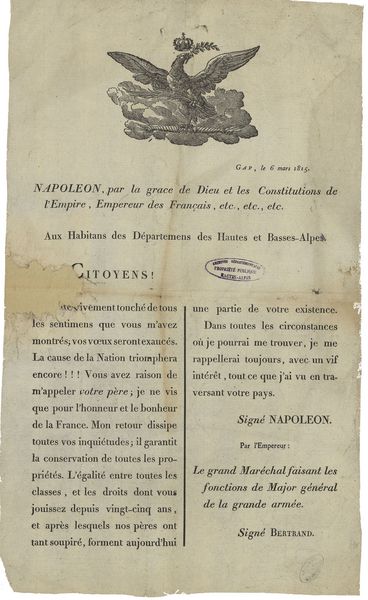 GAP, le 6 mars 1815.
NAPOLEON, par la grace de Dieu et les Constitutions de
l'Empire, Empereur des Français, etc., etc., etc.
Aux Habitans des Départemens des Hautes et Basses-Alpes.
CITOYENS!
ARCHIVES DÉPARTEMENTALES
PROPRIÉTÉ PUBLIQUE
HAUTES-ALPES
vivement touché de tous
les sentimens que vous m'avez
montrés; vos vœux seront exaucés.
La cause de la Nation triomphera
encore!!! Vous avez raison de
m'appeler votre père; je ne vis
que pour l'honneur et le bonheur
de la France. Mon retour dissipe
toutes vos inquiétudes; il garantit
la conservation de toutes les pro-
priétés. L'égalité entre toutes les
classes, et les droits dont vous
jouissez depuis vingt-cinq ans,
et après lesquels nos pères ont
tant soupiré, forment aujourd'hui
une partie de votre existence.
Dans toutes les circonstances
où je pourrai me trouver, je me
rappellerai toujours, avec un vif
intérêt, tout ce que j'ai vu en tra-
versant votre pays.
Signé NAPOLEON.
Par l'Empereur:
Le grand Maréchal faisant les
fonctions de Major général
de la grande armée.
Signé BERTRAND.